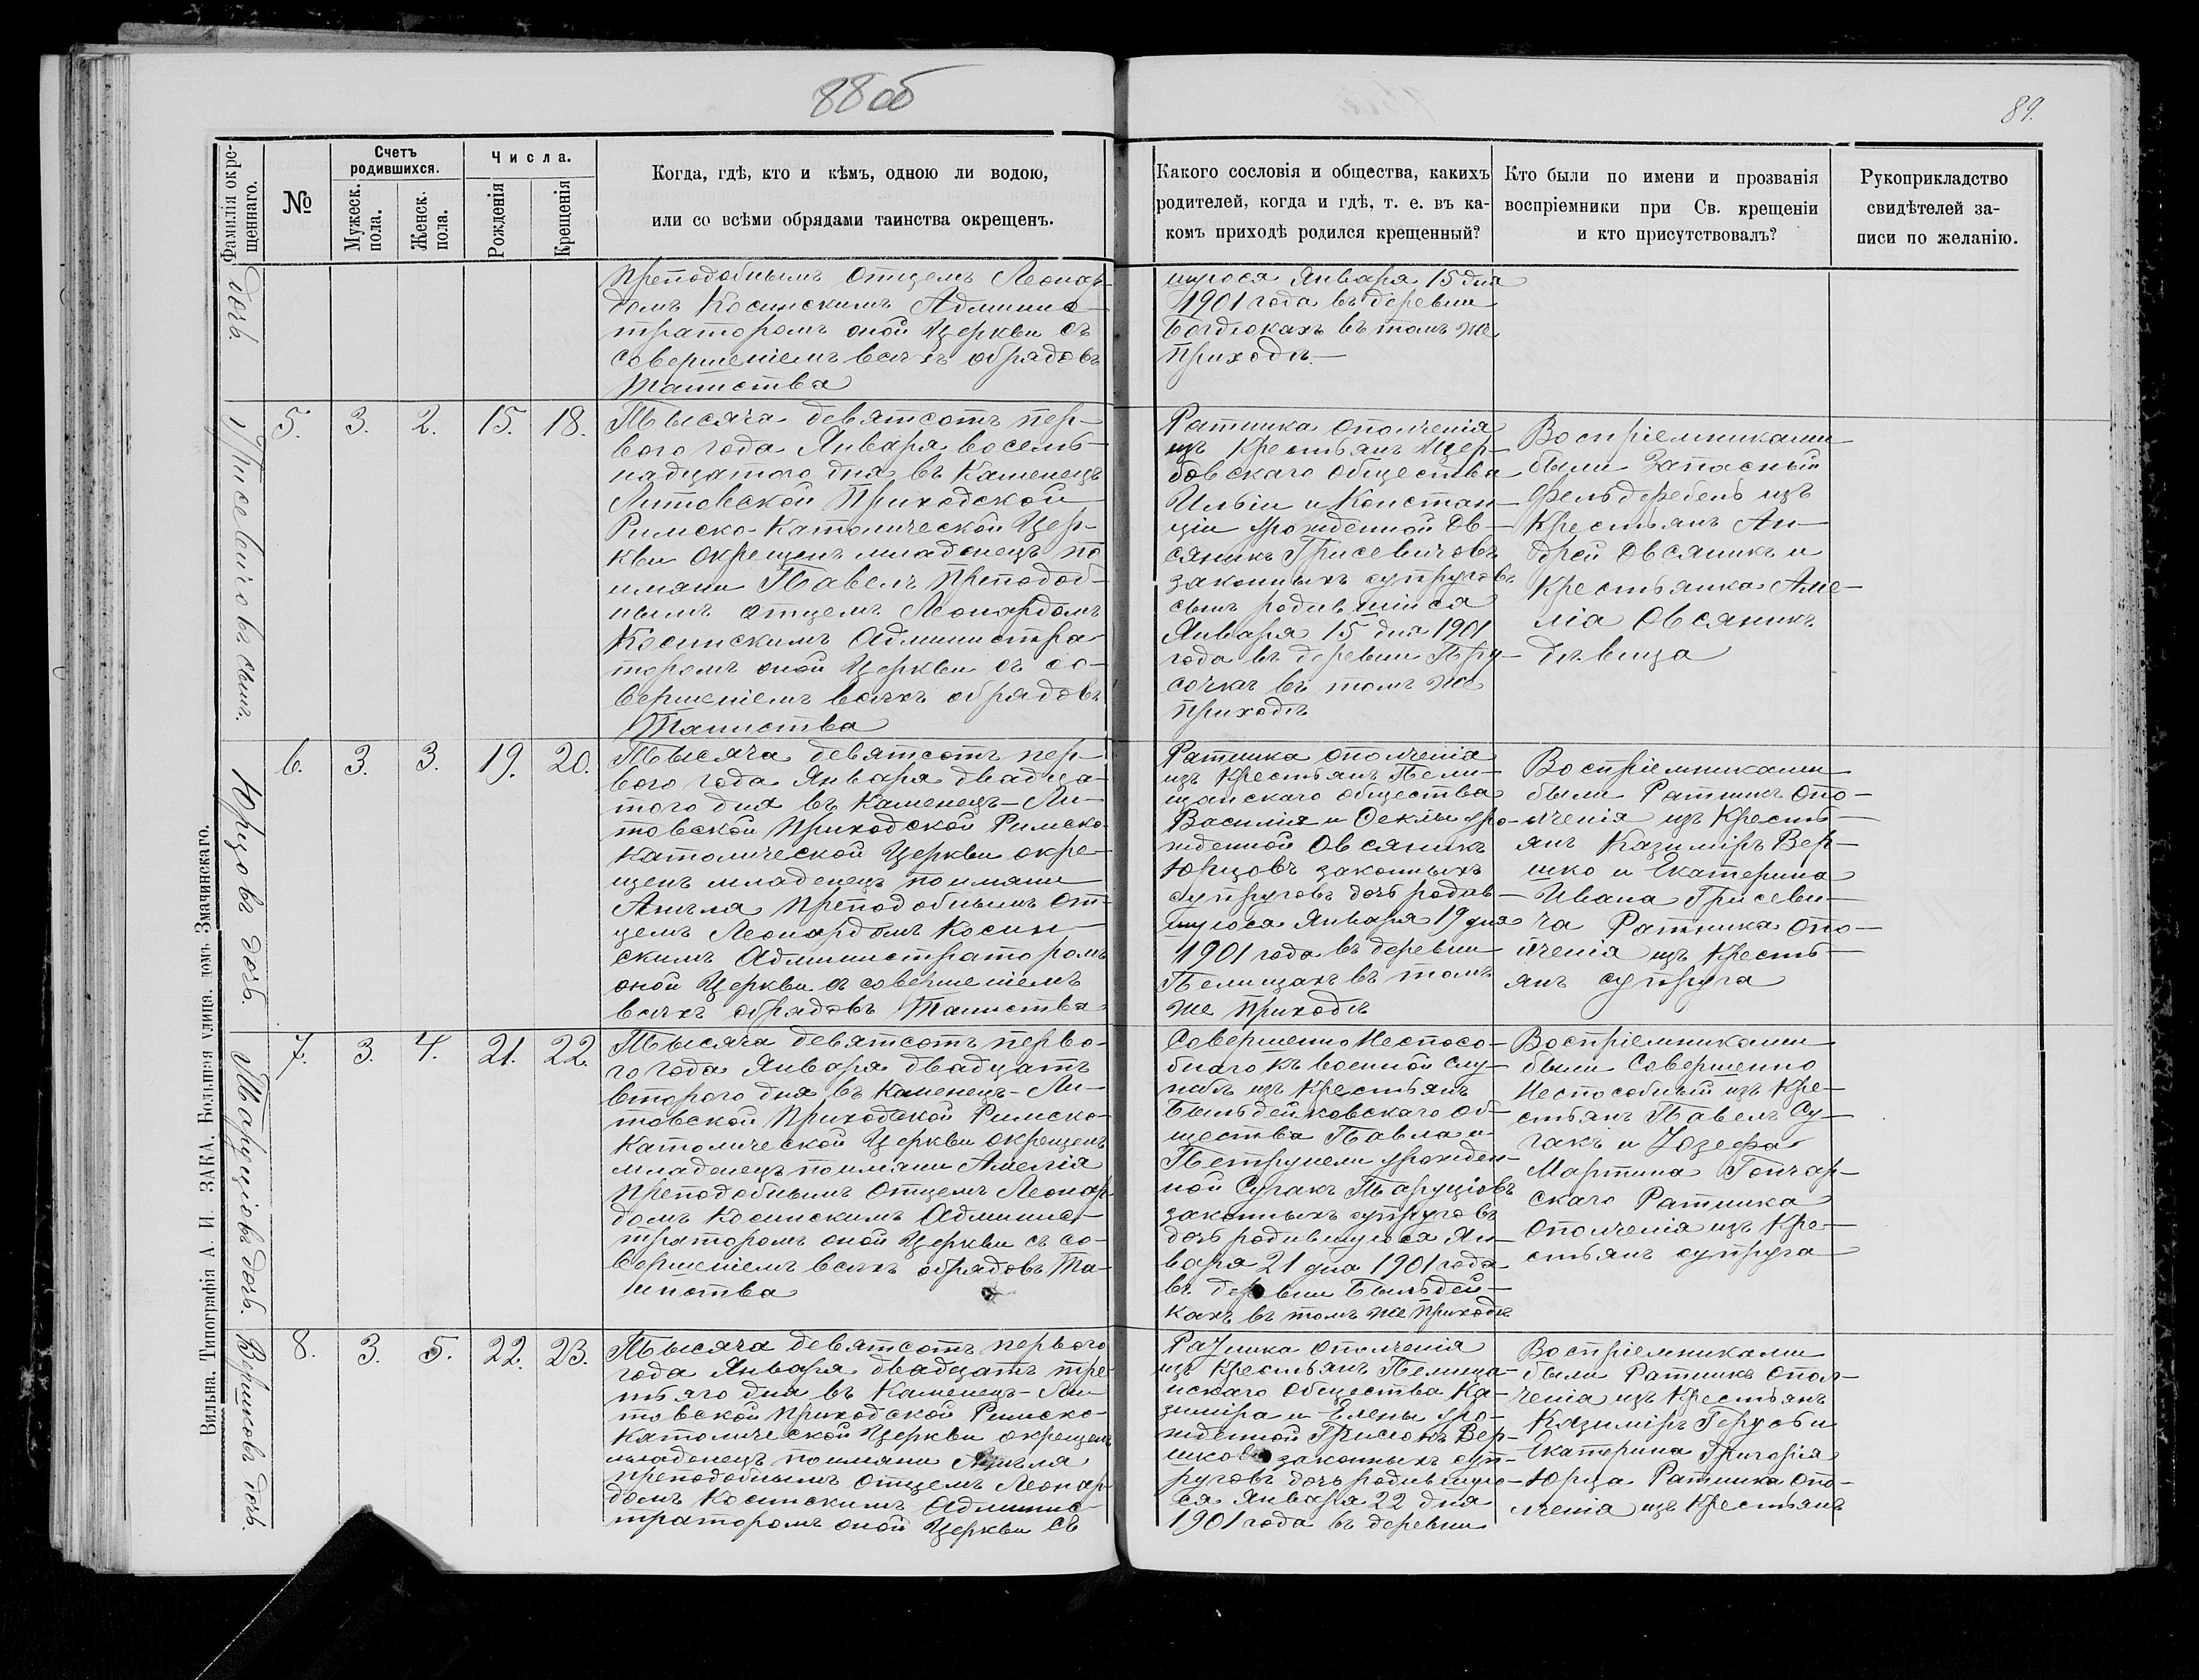 88 об
89.
Фамилія окре-
щеннаго.
№
Счетъ
родившихся.
Мужеск.
пола.
Женск.
пола.
Числа.
Рожденія
Крещенія
Когда, гдѣ, кто и кѣмъ, одною ли водою,
или со всѣми обрядами таинства окрещенъ.
Какого сословія и общества, какихъ
родителей, когда и гдѣ, т. е. въ ка-
комъ приходѣ родился крещенный?
Кто были по имени и прозванія
воспріемники при Св. крещеніи
и кто присутствовалъ?
Рукоприкладство
свидѣтелей за-
писи по желанію.
дочь.
Преподобнымъ Отцемъ Леонар-
домъ Косинскимъ Админис-
траторомъ оной Церкви съ
совершеніемъ всѣхъ обрядовъ
Таинства
шуюся Января 15 дня
1901 года въ деревни
Богдюкахъ въ томъ же
Приходѣ.—
Грисевичовъ сынъ.
5. 3. 2. 15. 18.
Тысяча девятсотъ пер-
вого года Января восемь-
надцатого дня въ Каменецъ
Литовской Приходской
Римско-Католической Цер-
кви окрещенъ младенецъ по
имяни Павелъ Преподоб-
нымъ Отцемъ Леонардомъ
Косинскимъ Администра-
торомъ оной Церкви съ со-
вершеніемъ всѣхъ обрядовъ
Таинства
Ратника ополченія
изъ Крестьянъ Щер-
бовскаго общества
Ильи и Констан-
ціи урожденной Ов-
сяникъ Грисевичовъ
законныхъ супруговъ
сынъ родившійся
Января 15 дня 1901
года въ деревни Пру-
сочкѣ въ томъ же
Приходѣ
Воспріемниками
были Запасный
Фельдфебель изъ
Крестьянъ Ан-
дрей Овсяникъ и
Крестьянка Аме-
лія Овсяникъ
дѣвица
Юрцовъ дочь.
6. 3. 3. 19. 20.
Тысяча девятсотъ пер-
вого года Января двадца-
того дня въ Каменецъ-Ли-
товской Приходской Римско-
Католической Церкви окре-
щенъ младенецъ по имяни
Анѣля Преподобнымъ От-
цемъ Леонардомъ Косин-
скимъ Администраторомъ
оной Церкви съ совершеніемъ
всѣхъ обрядовъ Таинства
Ратника ополченія
изъ Крестьянъ Пели-
щанскаго общества
Василія и Феклы уро-
жденной Овсяникъ
Юрцовъ законныхъ
супруговъ дочь родив-
шуюся Января 19 дня
1901 года въ деревни
Пелищахъ въ томъ
же Приходѣ
Воспріемниками
были Ратникъ опо-
лченія изъ Кресть-
янъ Казиміръ Вер-
шко и Екатерина
Ивана Грисеви-
ча Ратника Опо-
лченія изъ Кресть-
янъ супруга
Таруціовъ дочь.
7. 3. 4. 21. 22.
Тысяча девятсотъ перво-
го года Января двадцать
второго дня въ Каменецъ-Ли-
товской Приходской Римско-
Католической Церкви окрещенъ
младенецъ по имяни Амелія
Преподобнымъ Отцемъ Леонар-
домъ Косинскимъ Админис-
траторомъ оной Церкви съ со-
вершеніемъ всѣхъ обрядовъ Та-
инства
Совершенно Неспосо-
бнаго къ военной слу-
жбѣ изъ Крестьянъ
Быльдейковскаго об-
щества Павла и
Петрунели урожден-
ной Сугакъ Таруціовъ
законныхъ супруговъ
дочь родившуюся Ян-
варя 21 дня 1901 года
въ деревни Быльдей-
кахъ въ томъ же Приходѣ
Воспріемниками
были Совершенно
Неспособный изъ Кре-
стьянъ Павелъ Су-
гакъ и Юзефа
Мартина Гончар-
скаго Ратника
ополченія изъ Кре-
стьянъ супруга
Вершковъ дочь.
8. 3. 5. 22. 23.
Тысяча девятсотъ первого
года Января двадцать тре-
тьяго дня въ Каменецъ-Ли-
товской Приходской Римско-
Католической Церкви окрещенъ
младенецъ по имяни Анѣля
преподобнымъ Отцемъ Леонар-
домъ Косинскимъ Админис-
траторомъ оной Церкви съ
Ратника ополченія
изъ Крестьянъ Пелища-
нскаго Общества Ка-
зиміра и Елены уро-
жденной Грисюкъ Вер-
шковъ законныхъ суп-
руговъ дочь родившую-
ся Января 22 дня
1901 года въ деревни
Воспріемниками
были Ратникъ Опол-
ченія изъ Крестьянъ
Казиміръ Герусь и
Екатерина Григорія
Юрца Ратника Опо-
лченія изъ Крестьянъ
Вильна. Типографія А. И. ЗАКА, Большая улица, домъ Змачинскаго.